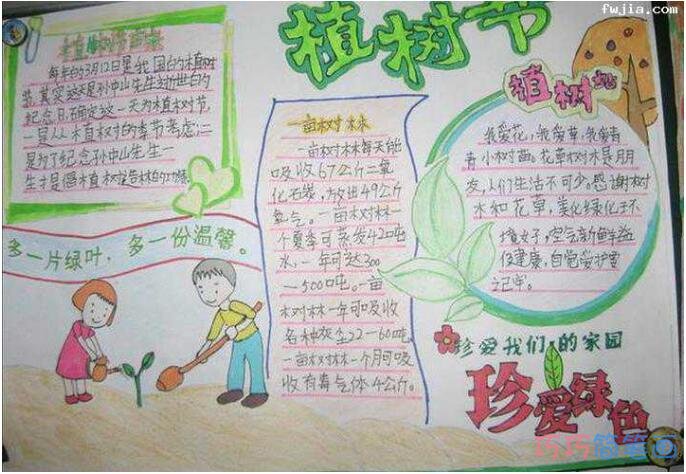 fwjia.com
植树节
植树节由来
每年的3月12日是我国的植树
节,其实这天是孙中山先生逝世的
纪念日,确定这一天为植树节,
一是从植树的季节考虑;二
是为了纪念孙中山先生一
生提倡植树造林的功绩。
多一片绿叶,多一份温馨。
一亩树林
一亩树林每天能
吸收67公斤二氧
化碳,放出49公斤
氧气。一亩树林一
个夏季可蒸发42吨
水,一年可达300
—500吨。一亩
树林一年可吸收
各种灰尘22—60吨,
一亩树林一个月可吸
收有毒气体4公斤。
植树
我爱花,我爱草,我爱青
青小树苗。花草树木是朋
友,人们生活不可少。感谢树
木和花草,美化绿化环
境好,空气新鲜益
健康,自觉爱护要
记牢。
珍爱我们的家园
珍爱绿色
巧巧简笔画